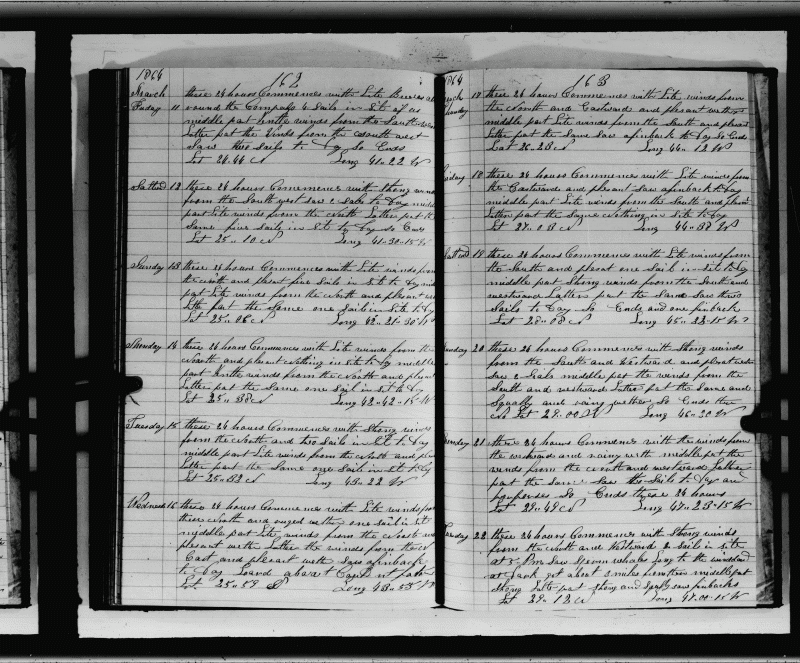 1864
162
March
these 24 hours Commences with Lite Breeses
Friday 11 round the Compass 4 Sails in Site
middle part Lite winds from the South
Latter part the winds from the South west
Saw two Sails to Day So Ends
Lat 24.44 N Long 41.22 W
12 these 24 hours Commences with Strong wind
from the South west saw 2 Sails to Day middle
part Lite winds from the North Latter part the
Same five Sails in Site to Day So Ends
Lat 25.10 N Long 41.30.15 W
Sunday 13 these 24 hours Commences with Lite winds from
the North and plesent five Sails in Site to Day
part Lite winds from the North and plesent
Latter part the Same one Sail in Site to Day
Lat 25.06 N Long 42.21.30 W
Monday 14 these 24 hours Commences with Lite winds from the
North and plesent Nothing in Site to Day middle
part Lite winds from the North and
Latter part the Same one Sail in Sit to Day
Lat 25.38 N Long 42.42.15 W
Tuesday 15 these 24 hours Commences with Strong winds
from the North and two Sails in Sit to Day
middle part Lite winds from the North and
Latter part the Same one Sail in Sit to Day
Lat 25.52 N Long 43.22 W
Wednesd 16 these 24 hours Commences with Lite winds from
the North and one Sail in Site
middle part Lite winds from the North
plesent wether Latter the winds from the
East and plesent wether Saw a finback
to Day
Lat 25.59 N Long 43.53 W
1864
163
March 17 these 24 hours Commences with Lite winds from
the North and Eastward and plesent wether
middle part Lite winds from the South and plesent
Latter part the Same Saw a finback to Day So Ends
Lat 26.28 N Long 44.12 W
Friday 18 these 24 hours Commences with Lite winds from
the Eastward and plesent Saw a finback to Day
middle part Lite winds from the South and plesent
Latter part the Same Nothing in Site to Day
Lat 27.03 N Long 44.38 W
19 these 24 hours Commences with Lite winds from
the South and plesent one Sail in Sit to Day
middle part Strong winds from the South and
westward Latter part the Same Saw two
Sails to Day So Ends and one finback
Lat 28.08 N Long 45.33.15 W
Sunday 20 these 24 hours Commences with Strong winds
from the South and Westward and plesent wether
Saw 2 Sails middle part the winds from the
South and westward Latter part the Same and
Squally and rainy wether So Ends these
Lat 29.00 N Long 46.20 W
Monday 21 these 24 hours Commences with the winds from
the westward and rainy wether middle part the
winds from the North and westward Latter
part the Same Saw two Sails to Day and
porpoises So Ends these 24 hours
Lat 29.49 N Long 47.23.15 W
Tuesday 22 these 24 hours Commences with Strong winds
from the North and Westward 2 Sails in Site
at 5 P.M. Saw Sperm whales going to the windward
at Dark got about 3 miles from them middle part
Strong Latter part Strong and Saw finbacks
Lat 29.12 N Long 47.00.15 W